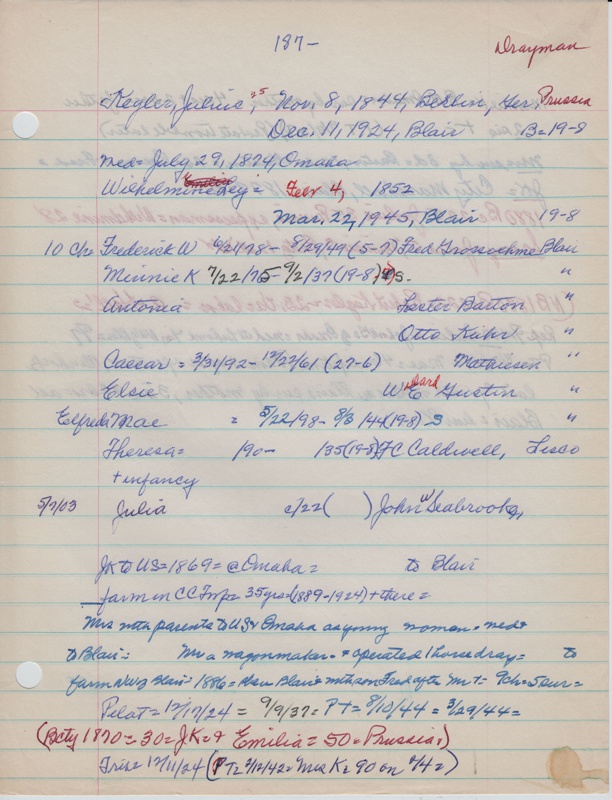 187-
Drayman
Kegler, Julius, 25 Nov. 8, 1844, Berlin, Ger, Prussia
Dec. 11, 1924, Blair B=19-8
med= July 29, 1874, Omaha
Wilhelmine Ley= Febr 4, 1852
Mar. 22, 1945, Blair 19-8
10 Ch= Frederick W 6/24/78- 8/29/49 (5-7) Fred Grosschme Blair
Minnie K 7/22/75-9/2/37 (19-8) S. "
Antonia= Lester Barton "
Otto Kuhr "
Caesar = 3/31/92-12/22/61 (27-6) Mathiesen "
Elsie Ward Gustin "
Elfreda Mae = 5/22/98- 8/3/44 (19-8) S "
Theresa= 190- 135 (19-8) FC Caldwell, Lisco
+ infancy
5/7/03 Julia c/22 ( ) John W Seabrooke,
JK to US=1869= @ Omaha= to Blair
farm in CC Twp= 35 yrs=(1889-1924) + there=
Mrs with parents to US & Omaha as young woman= med=
to Blair= Mr a wagonmaker= + operated 1 horse dray= to
farm NW of Blair= 1886= Blair with son Fred after Mr +=9ch=5 sur=
Pilot=12/17/24= 9/9/37= PT= 8/10/44= 3/29/44=
(Bcty 1870=30=JK=+ Emilia=50=Prussia,)
Trib= 12/11/24 (PT= 2/12/42=Mrs K=90 on 2/4=)